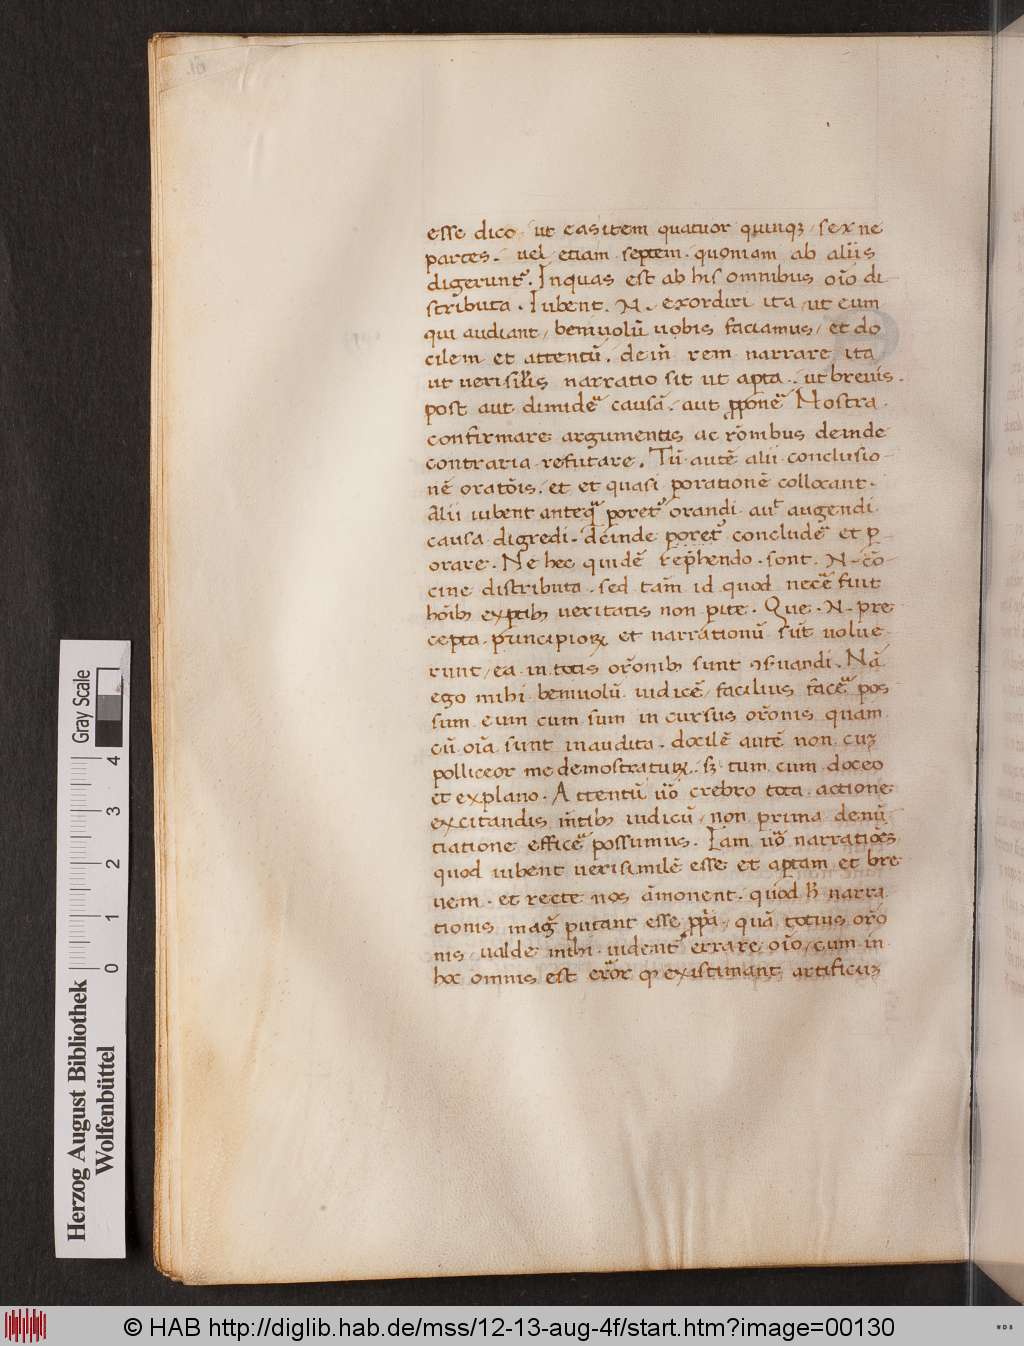 esse dico · ut eas item quatuor quinqꝫ / sex ne
partes · uel / etiam septem · quoniam ab aliis
digerunt᷑ . Inquas est ab his omnibus oĩo di
stributa . Iubent . N . exordiri ita / ut eum
qui audiant / beniuolũ nobis faciamus / et do
cilem et attentũ . dein̄ rem narrare ita
ut uerisil̃is narratio sit ut apta . ut breuis .
post aut diuidẽ causã . aut ꝓponẽ Nostra
confirmare argumentis ac rõnibus deinde
contraria refutare . Tũ autẽ alii conclusio
nẽ oratõis . et et quasi ꝑorationẽ collocant .
Alii iubent anteqᷓ ꝑoret᷑ orandi aut augendi
causa digredi . deinde ꝑoret᷑ concludẽ et ꝑ
orare . Ne hec quidẽ rep̃hendo . sont . N . cõ
cine distributa . sed tam̃ id quod necẽ fuit
hoĩbꝫ exꝑtibꝫ ueritatis non ꝑite . Que . N . pre
cepta principioꝝ et narrationũ sũt uolue
runt / ea in totis or̃onibꝫ sunt ꝯseruandi . Nã
ego mihi beniuolũ iudicẽ / facilius facẽ pos
sum eum cum sum in cursus or̃onis quam
cũ oĩa sunt inaudita . docilẽ autẽ non cuꝫ
polliceor me demostraturꝝ . sꝫ tum cum doceo
et explano . Attentũ u͂o crebro tota actione
excitandis m̃tibꝫ iudicũ / non prima denũ
tiatione efficẽ possumus . Iam u͂o narratiões
quod iubent uerisimilẽ esse et aptam et bre
uem . et recte nos ãmonent . quod h̃ narra
tionis mag̃ putant esse ꝓp̃a / quã totius or̃o
nis / ualde mihi uident᷑ errare / oĩo / cum in
hoc omnis est error ꝙ existimant artificiuꝫ
Herzog August Bibliothek
Wolfenbüttel
Gray Scale
0 1 2 3 4
© HAB http://diglib.hab.de/mss/12-13-aug-4f/start.htm?image=00130